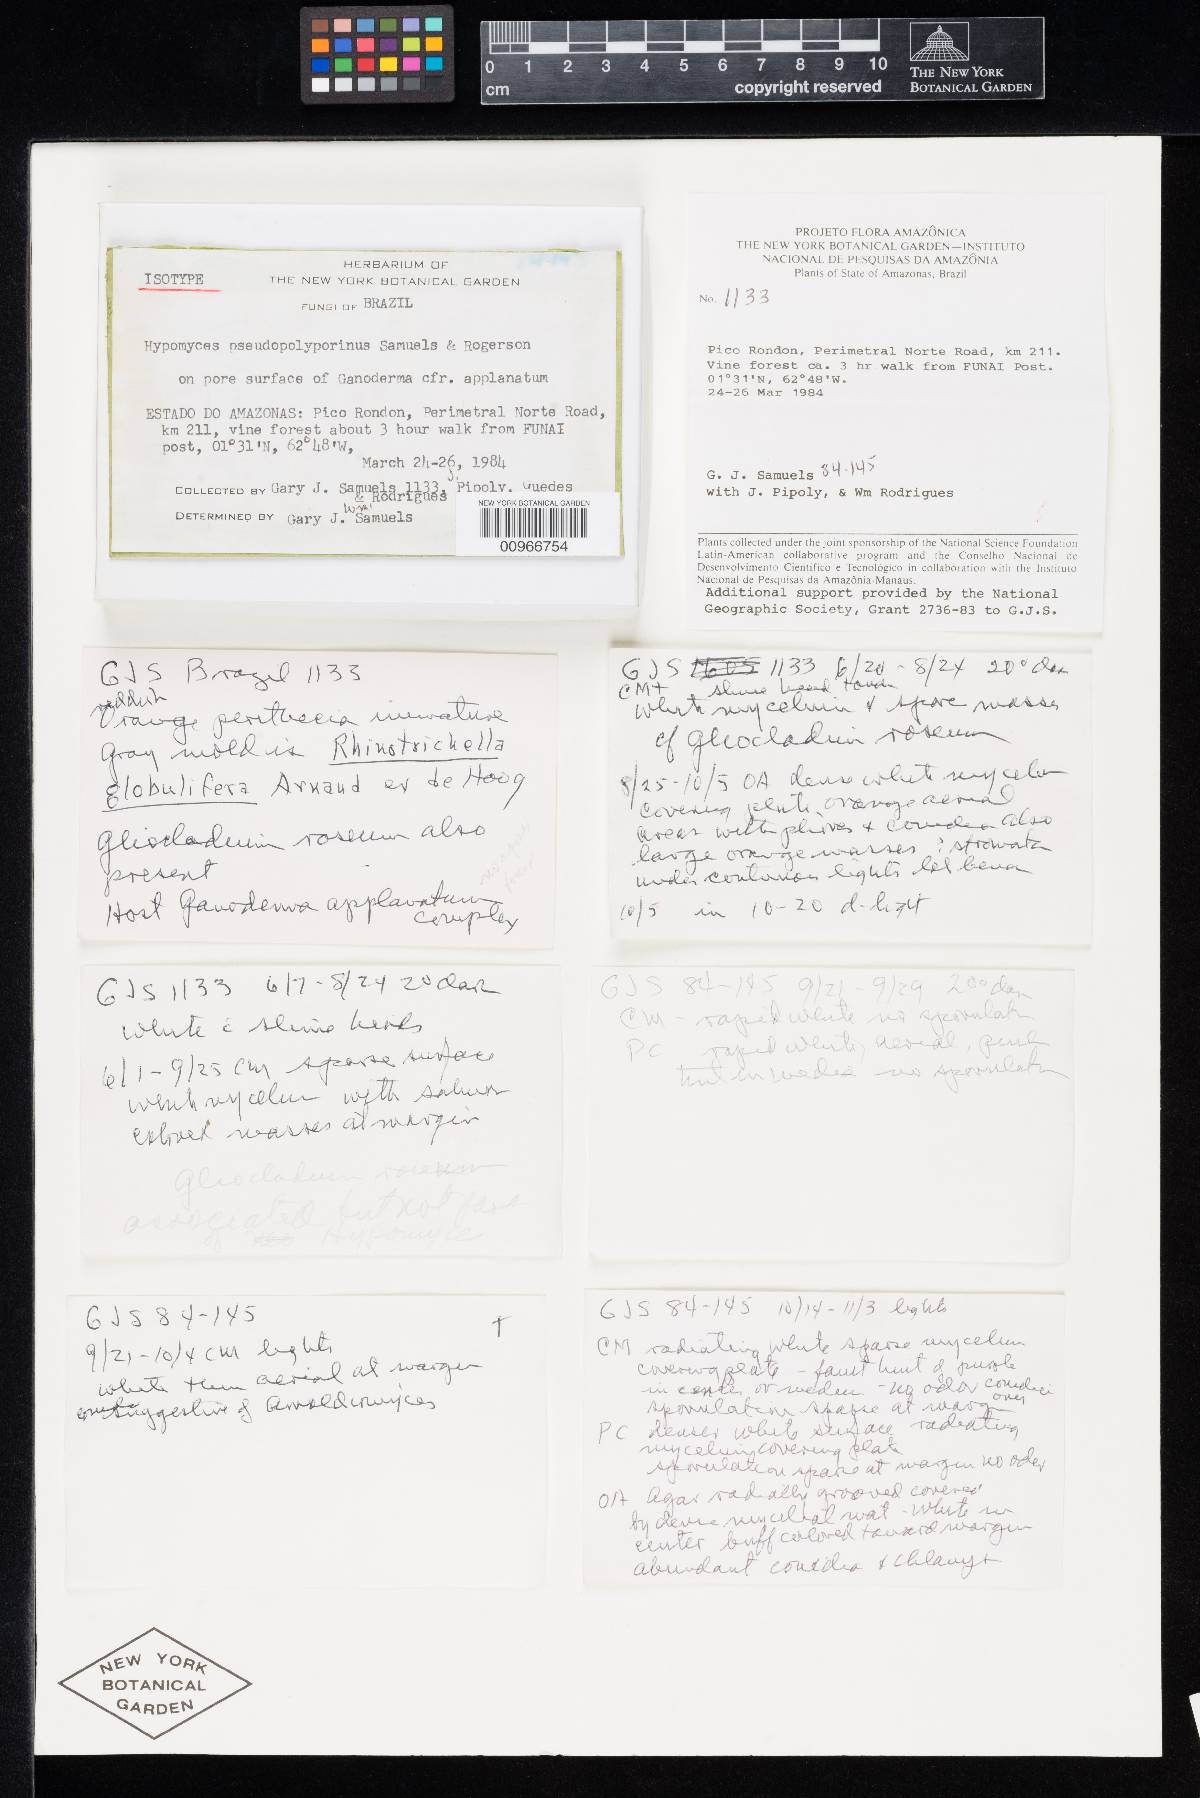 0 1 2 3 4 5 6 7 8 9 10
cm
copyright reserved
THE NEW YORK
BOTANICAL GARDEN
HERBARIUM OF
ISOTYPE
THE NEW YORK BOTANICAL GARDEN
FUNGI OF BRAZIL
Hypomyces pseudopolyporinus Samuels & Rogerson
on pore surface of Ganoderma cfr. applanatum
ESTADO DO AMAZONAS: Pico Rondon, Perimetral Norte Road,
km 211, vine forest about 3 hour walk from FUNAI
post, 01°31'N, 62°48'W,
March 24-26, 1984
COLLECTED BY Gary J. Samuels 1133, J. Pipoly, Guedes
& Wm. Rodrigues
DETERMINED BY Gary J. Samuels
NEW YORK BOTANICAL GARDEN
00966754
PROJETO FLORA AMAZÔNICA
THE NEW YORK BOTANICAL GARDEN—INSTITUTO
NACIONAL DE PESQUISAS DA AMAZÔNIA
Plants of State of Amazonas, Brazil
No. 1133
Pico Rondon, Perimetral Norte Road, km 211.
Vine forest ca. 3 hr walk from FUNAI Post.
01°31'N, 62°48'W.
24-26 Mar 1984
G. J. Samuels 84-145
with J. Pipoly, & Wm Rodrigues
Plants collected under the joint sponsorship of the National Science Foundation
Latin-American collaborative program and the Conselho Nacional de
Desenvolvimento Científico e Tecnológico in collaboration with the Instituto
Nacional de Pesquisas da Amazônia-Manaus.
Additional support provided by the National
Geographic Society, Grant 2736-83 to G.J.S.
GJS Brazil 1133
reddish
Orange perithecia immature
Gray mold is Rhinotrichella
globulifera Arnaud ex de Hoog
Gliocladium roseum also
present
Host Ganoderma applanatum
complex
GJS 1133 6/20 - 8/24 20° dark
CM+ slime head
white mycelium & spore masses
of gliocladium roseum
8/25-10/5 OA dense white mycelium
covering plate, orange aerial
areas with & conidia also
large orange masses ? stromata
under continuous lights
10/5 in 10-20 d-light
GJS 1133 6/7-8/24 20 dark
white c slime heads
6/1-9/25 CM sparse surface
white mycelium with salmon
colored masses at margin
Gliocladium roseum
associated but not part
of Hypomyces
GJS 84-145 9/21 - 9/29 20° dark
CM - rapid white no sporulation
PC rapid white, aerial, pink
tint in media no sporulation
GJS 84-145
9/21-10/4 CM lights
white thin aerial at margin
suggestive of Arnoldiomyces
GJS 84-145 10/14-11/3 lights
CM radiating white sparse mycelium
covering plate - faint hint of purple
in center or medium - no odor conidia
sporulation sparse at margin
PC denser white surface radiating
mycelium covering plate
sporulation sparse at margin no odor
OA Agar radially grooved covered
by dense mycelial mat - White in
center buff colored toward margin
abundant conidia & chlamy +
NEW YORK
BOTANICAL
GARDEN